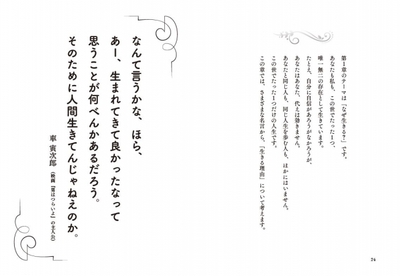 第1章のテーマは「なぜ生きる？」です。
あなたも私も、この世でたった一つ、
唯一無二の存在として生きています。
たとえ、自分に自信があろうがなかろうが、
あなたはあなた、代えは効きません。
あなたと同じ人も、同じ人生を歩む人も、ほかにはいません。
この世でたった1つだけの人生です。
この章では、さまざまな名言から、「生きる理由」について考えます。
24
なんて言うかな、ほら、
あー、生まれてきて良かったなって
思うことが何べんかあるだろう。
そのために人間生きてんじゃねえのか。
車 寅次郎
（映画『男はつらいよ』の主人公）